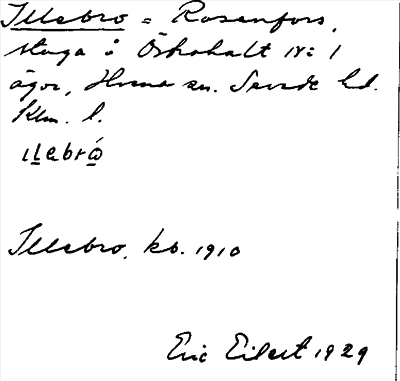 Illebro = Rosenfors,
stuga å Öskehalt nr: 1
ägor, Hvena sn. Sevede hd.
Klm. l.
ɩlebrò
Illebro, kb. 1910
Eric Eilert 1929